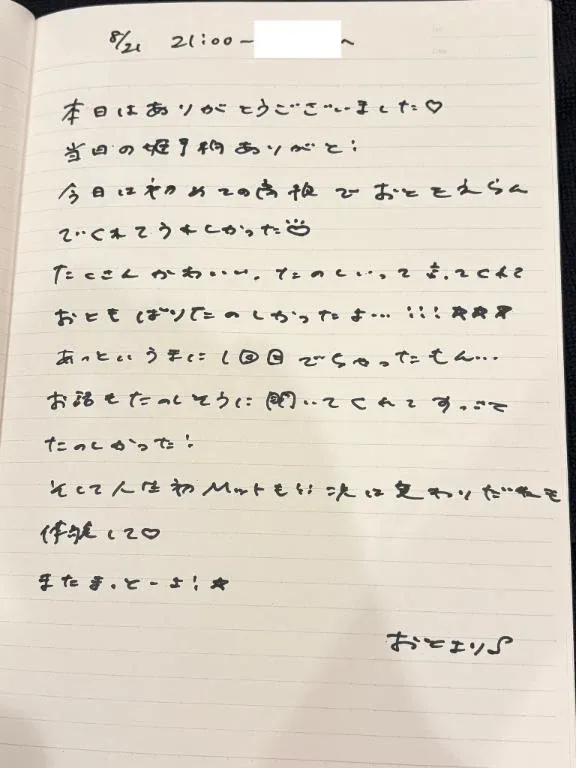 8/21 21:00~ ~
本日はありがとうございました♡
当日の姫予約ありがと!
今日は初めての高級でおとをえらん
でくれてうれしかった
たくさんかわいい、たのしいって言ってくれて
おともばりたのしかったよ…!!!★★★
あっというまに1回目でちゃったもん…
お話もたのしそうに聞いてくれてすっごく
たのしかった!
そして人生初Mットも!! 次は変わりだねも
体験して♡
またまっとーよ!★
おとより♪